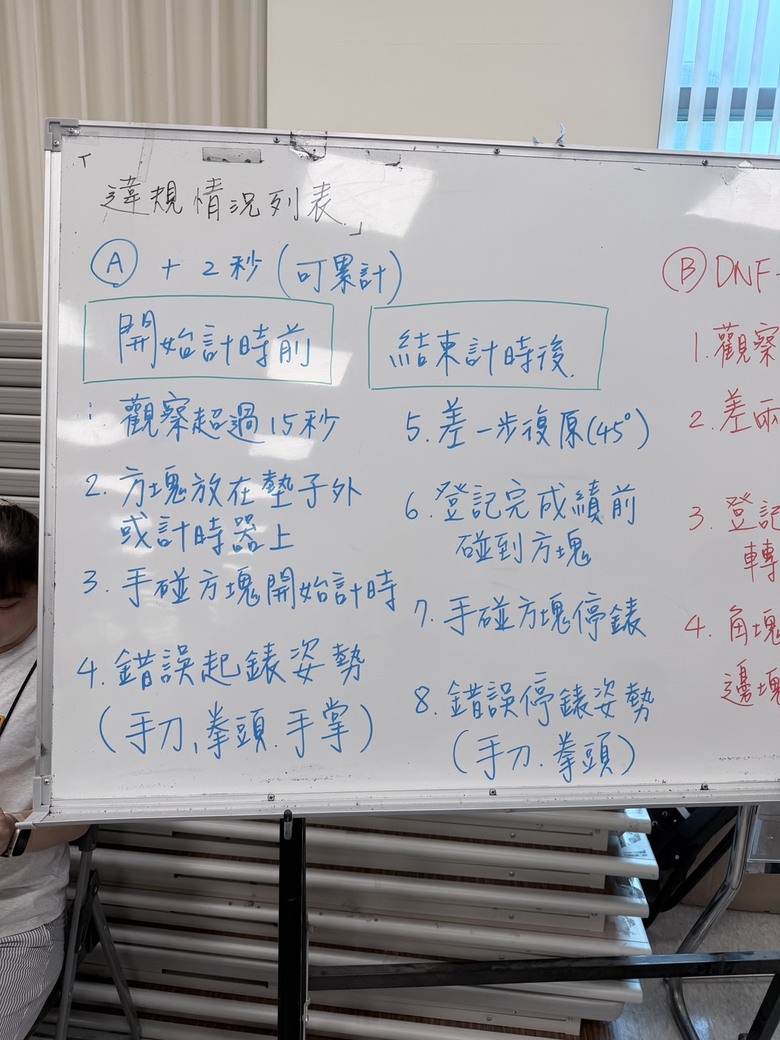 「違規情況列表」
Ⓐ +2秒(可累計)
開始計時前
1. 觀察超過15秒
2. 方塊放在墊子外
或計時器上
3. 手碰方塊開始計時
4. 錯誤起錶姿勢
(手刀、拳頭.手掌)
結束計時後.
5. 差一步復原(45°)
6. 登記完成績前
碰到方塊
7. 手碰方塊停錶
8. 錯誤停錶姿勢
(手刀.拳頭)
Ⓑ DNF
1. 觀察
2. 差兩
3. 登記
轉
4. 角塊
邊塊